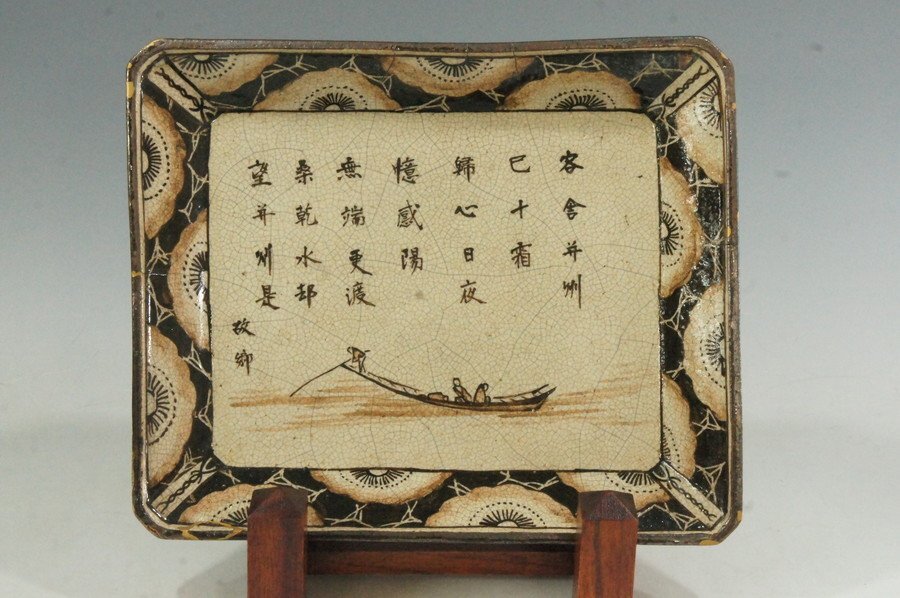 客舍并州
已十霜
歸心日夜
憶感陽
無端更渡
桑乾水却
望并州是
故鄉